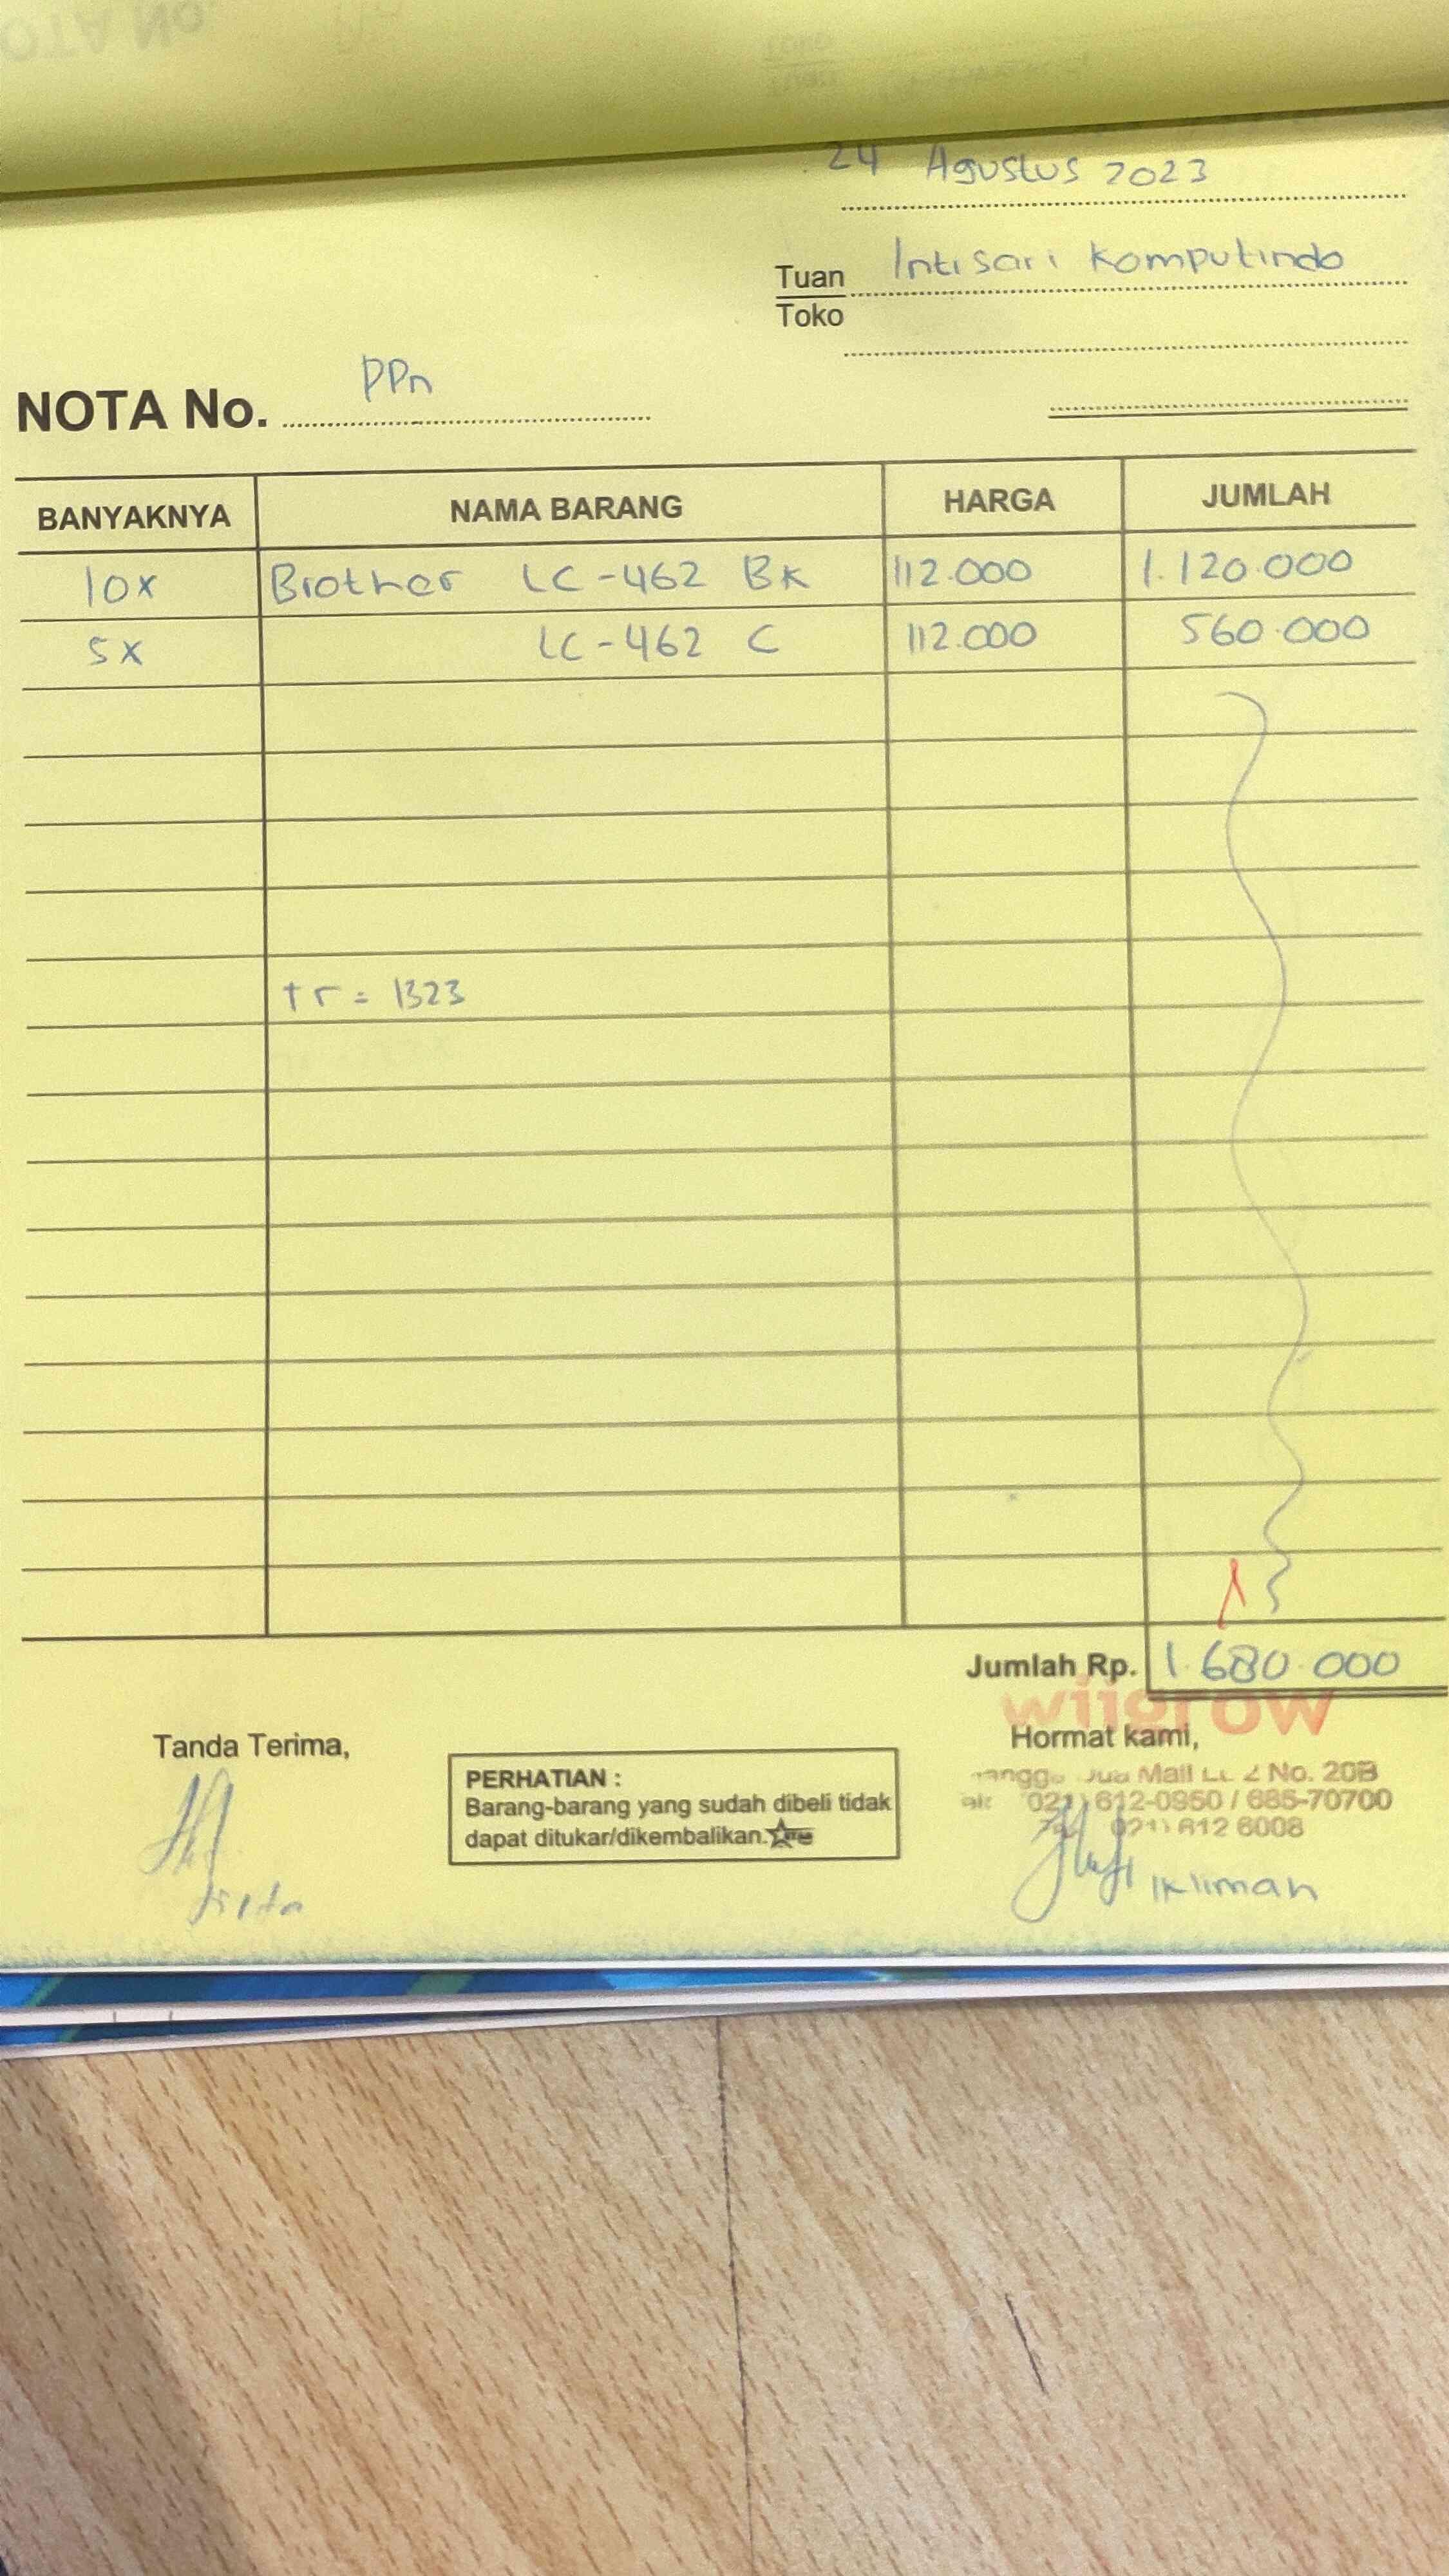 24 Agustus 2023
Tuan Intisari Komputindo
Toko
NOTA No. PPn
BANYAKNYA NAMA BARANG HARGA JUMLAH
10x Brother LC-462 BK 112.000 1.120.000
5x LC-462 C 112.000 560.000
tr = 1323
Jumlah Rp. 1.680.000
wiigrow
Tanda Terima, Hormat kami,
PERHATIAN :
Barang-barang yang sudah dibeli tidak
dapat ditukar/dikembalikan.
Mall Lt. 2 No. 20B
021) 612-0950 / 685-70700
021) 612 6008
Ikliman